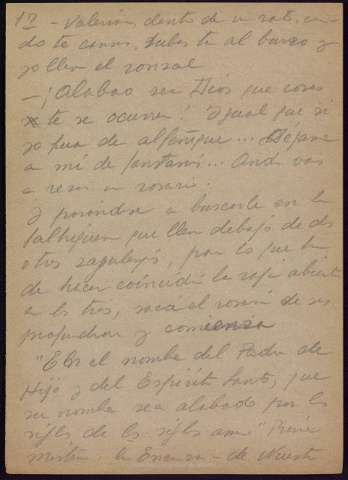 17 - Valerin, dentro de un rato, cuan-
do te canses, subes tú al burro y
yo llevo el ronzal
- ¡Alabao sea Dios que cosas
te se ocurren! Igual que si
yo fuera de alfeñique... Déjame
a mí de fantasías... Anda vas
a rezar un rosario.
Y poniéndose a buscarle en la
faltriquera que lleva debajo de
otros zagalejos, por lo que ha
de hacer coincidir la raja abierta
a los tres, saca el rosario de sus
profundidades y comienza
"En el nombre del Padre del
Hijo y del Espíritu Santo, que
su nombre sea alabado por los
siglos de los siglos amen" Primer
misterio: la Encarnación de Nuestro